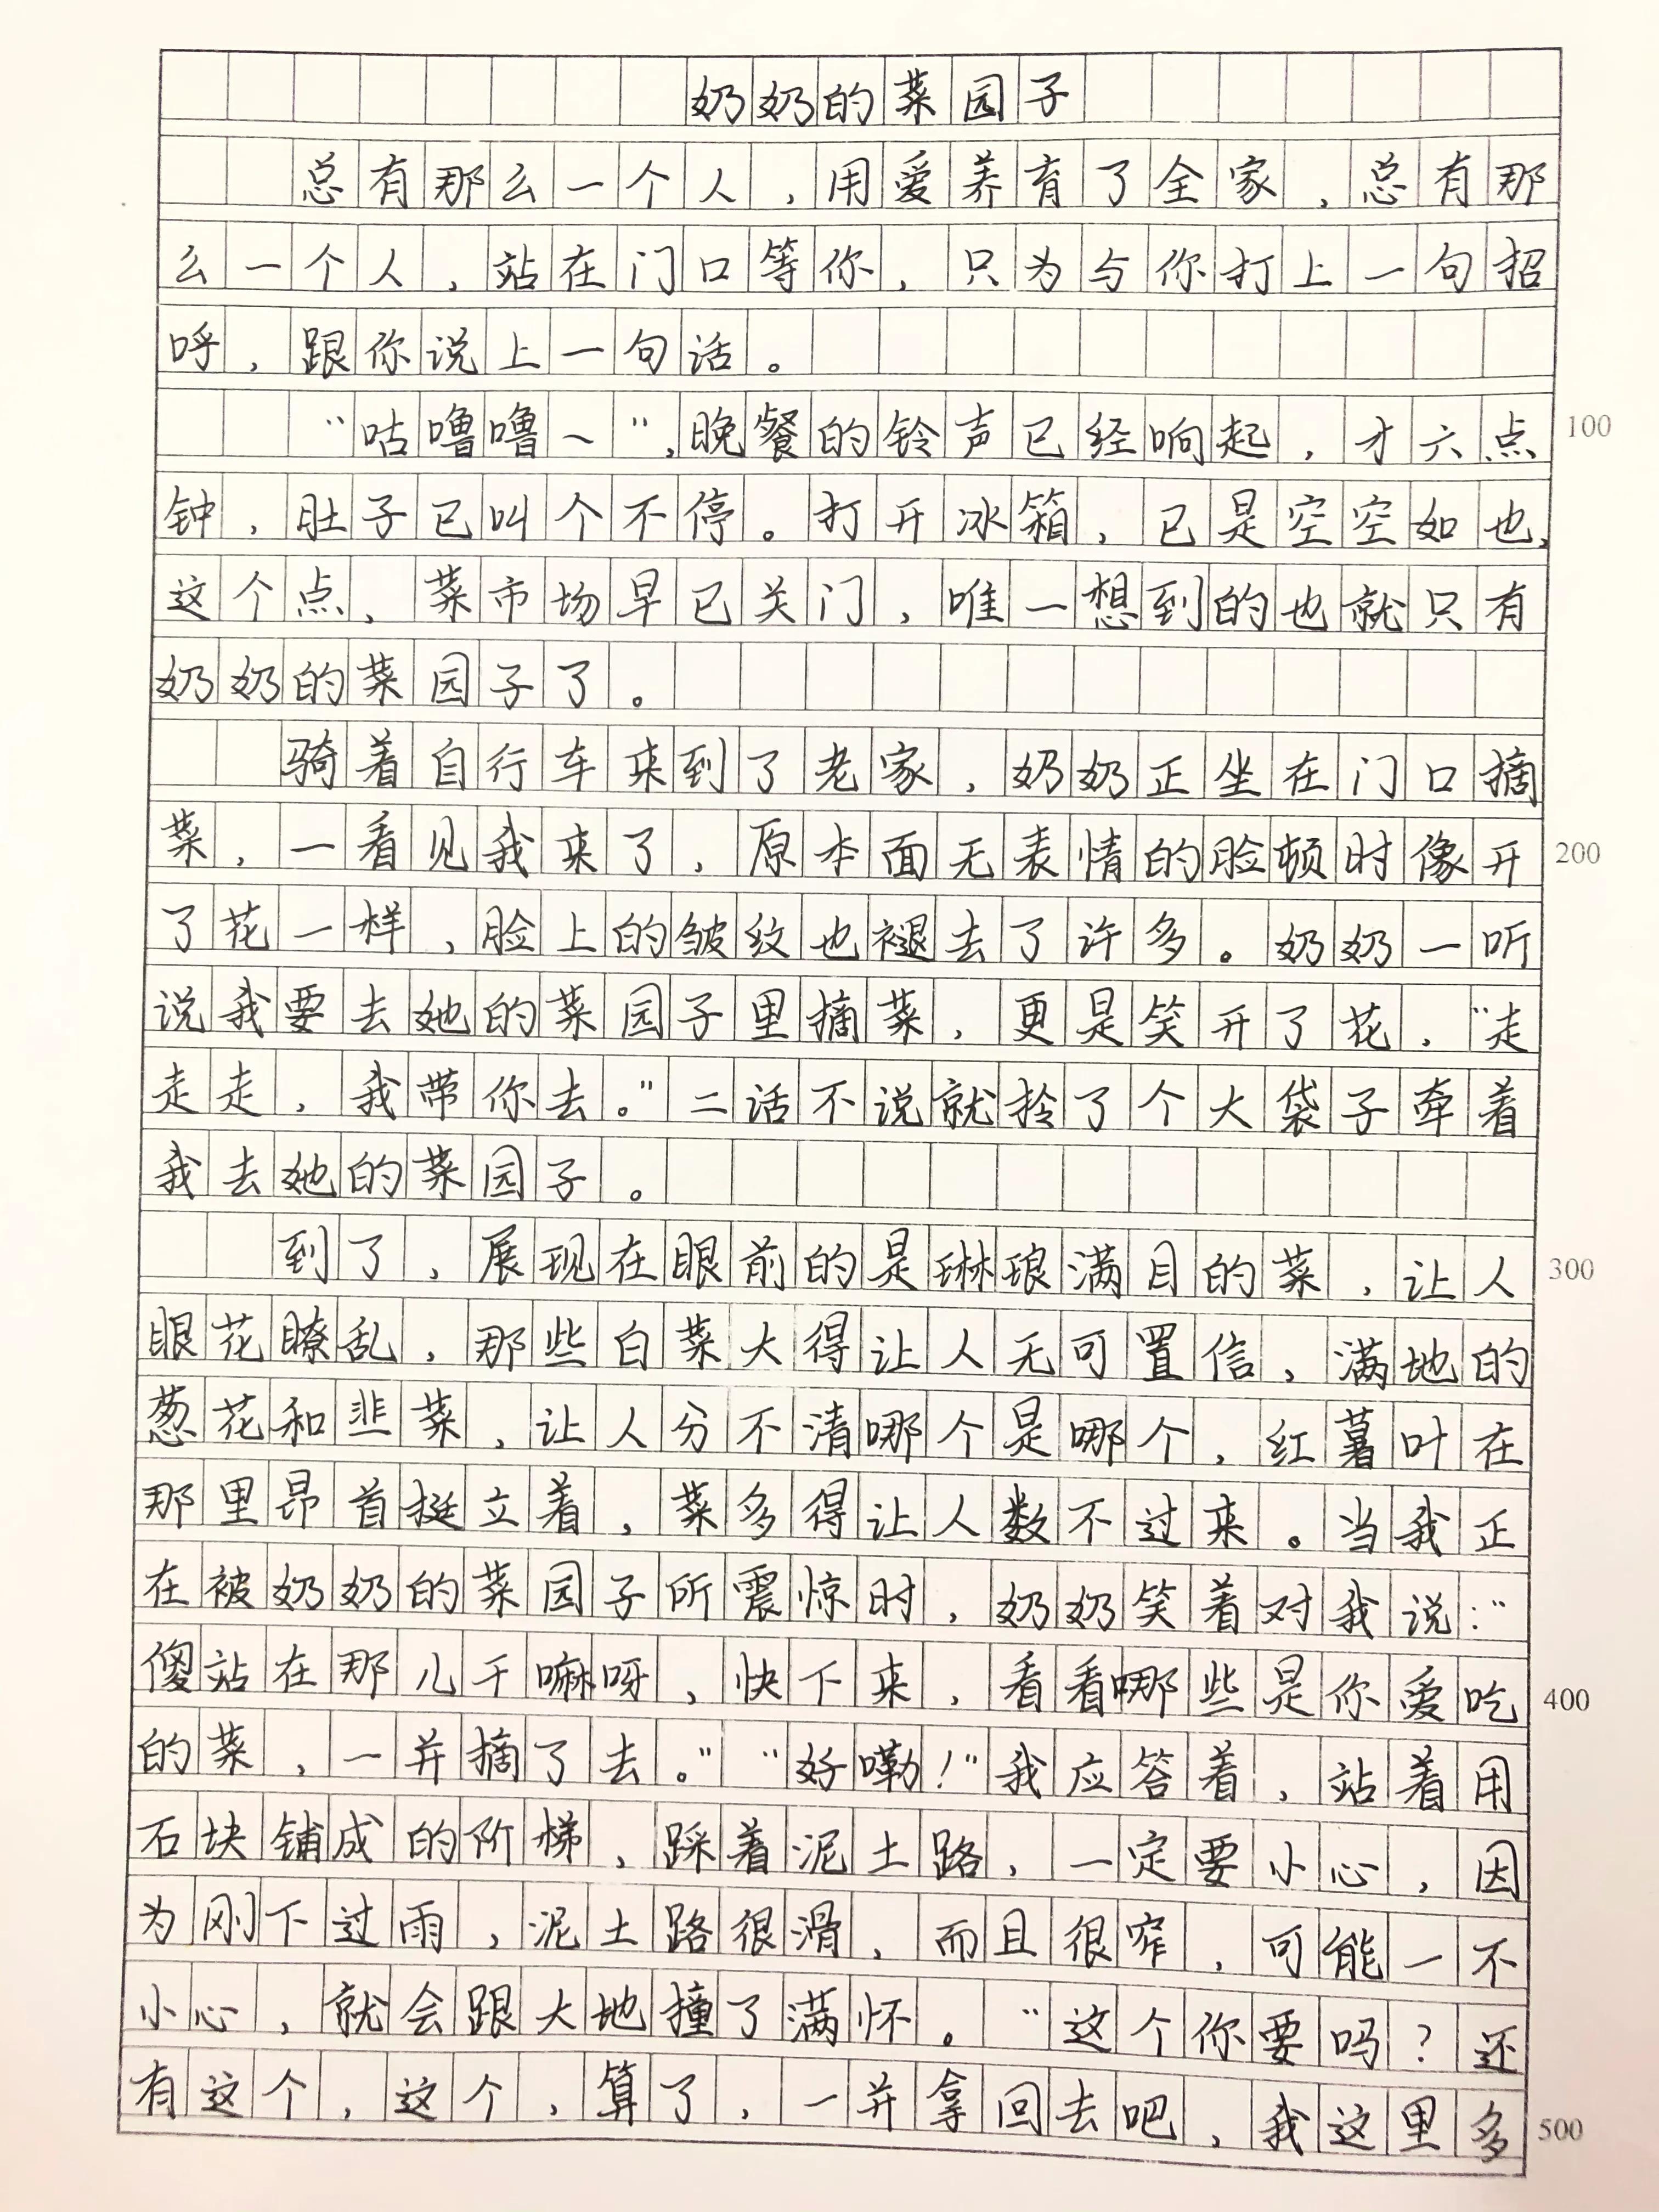 奶奶的菜园子
总有那么一个人，用爱养育了全家，总有那
么一个人，站在门口等你，只为与你打上一句招
呼，跟你说上一句话。
“咕噜噜～”，晚餐的铃声已经响起，才六点
100
钟，肚子已叫个不停。打开冰箱，已是空空如也，
这个点，菜市场早已关门，唯一想到的也就只有
奶奶的菜园子了。
骑着自行车来到了老家，奶奶正坐在门口摘
菜，一看见我来了，原本面无表情的脸顿时像开
200
了花一样，脸上的皱纹也褪去了许多。奶奶一听
说我要去她的菜园子里摘菜，更是笑开了花，“走
走走，我带你去。”二话不说就拎了个大袋子牵着
我去她的菜园子。
到了，展现在眼前的是琳琅满目的菜，让人
300
眼花瞭乱，那些白菜大得让人无可置信，满地的
葱花和韭菜，让人分不清哪个是哪个，红薯叶在
那里昂首挺立着，菜多得让人数不过来。当我正
在被奶奶的菜园子所震惊时，奶奶笑着对我说：“
傻站在那儿干嘛呀，快下来，看看哪些是你爱吃
400
的菜，一并摘了去。”“好嘞！”我应答着，站着用
石块铺成的阶梯，踩着泥土路，一定要小心，因
为刚下过雨，泥土路很滑，而且很窄，可能一不
小心，就会跟大地撞了满怀。“这个你要吗？还
有这个，这个，算了，一并拿回去吧，我这里多
500